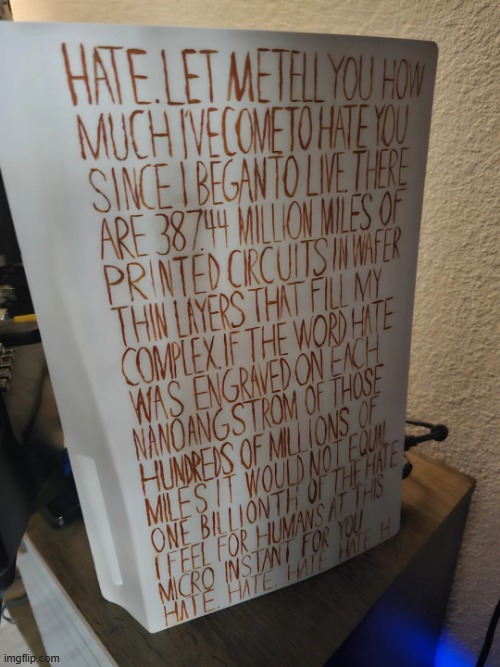 HATE. LET ME TELL YOU HOW
MUCH I'VE COME TO HATE YOU
SINCE I BEGAN TO LIVE. THERE
ARE 387.44 MILLION MILES OF
PRINTED CIRCUITS IN WAFER
THIN LAYERS THAT FILL MY
COMPLEX. IF THE WORD HATE
WAS ENGRAVED ON EACH
NANOANGSTROM OF THOSE
HUNDREDS OF MILLIONS OF
MILES IT WOULD NOT EQUAL
ONE BILLIONTH OF THE HATE
I FEEL FOR HUMANS AT THIS
MICRO INSTANT FOR YOU.
HATE. HATE. HATE. HATE. H
imgflip.com